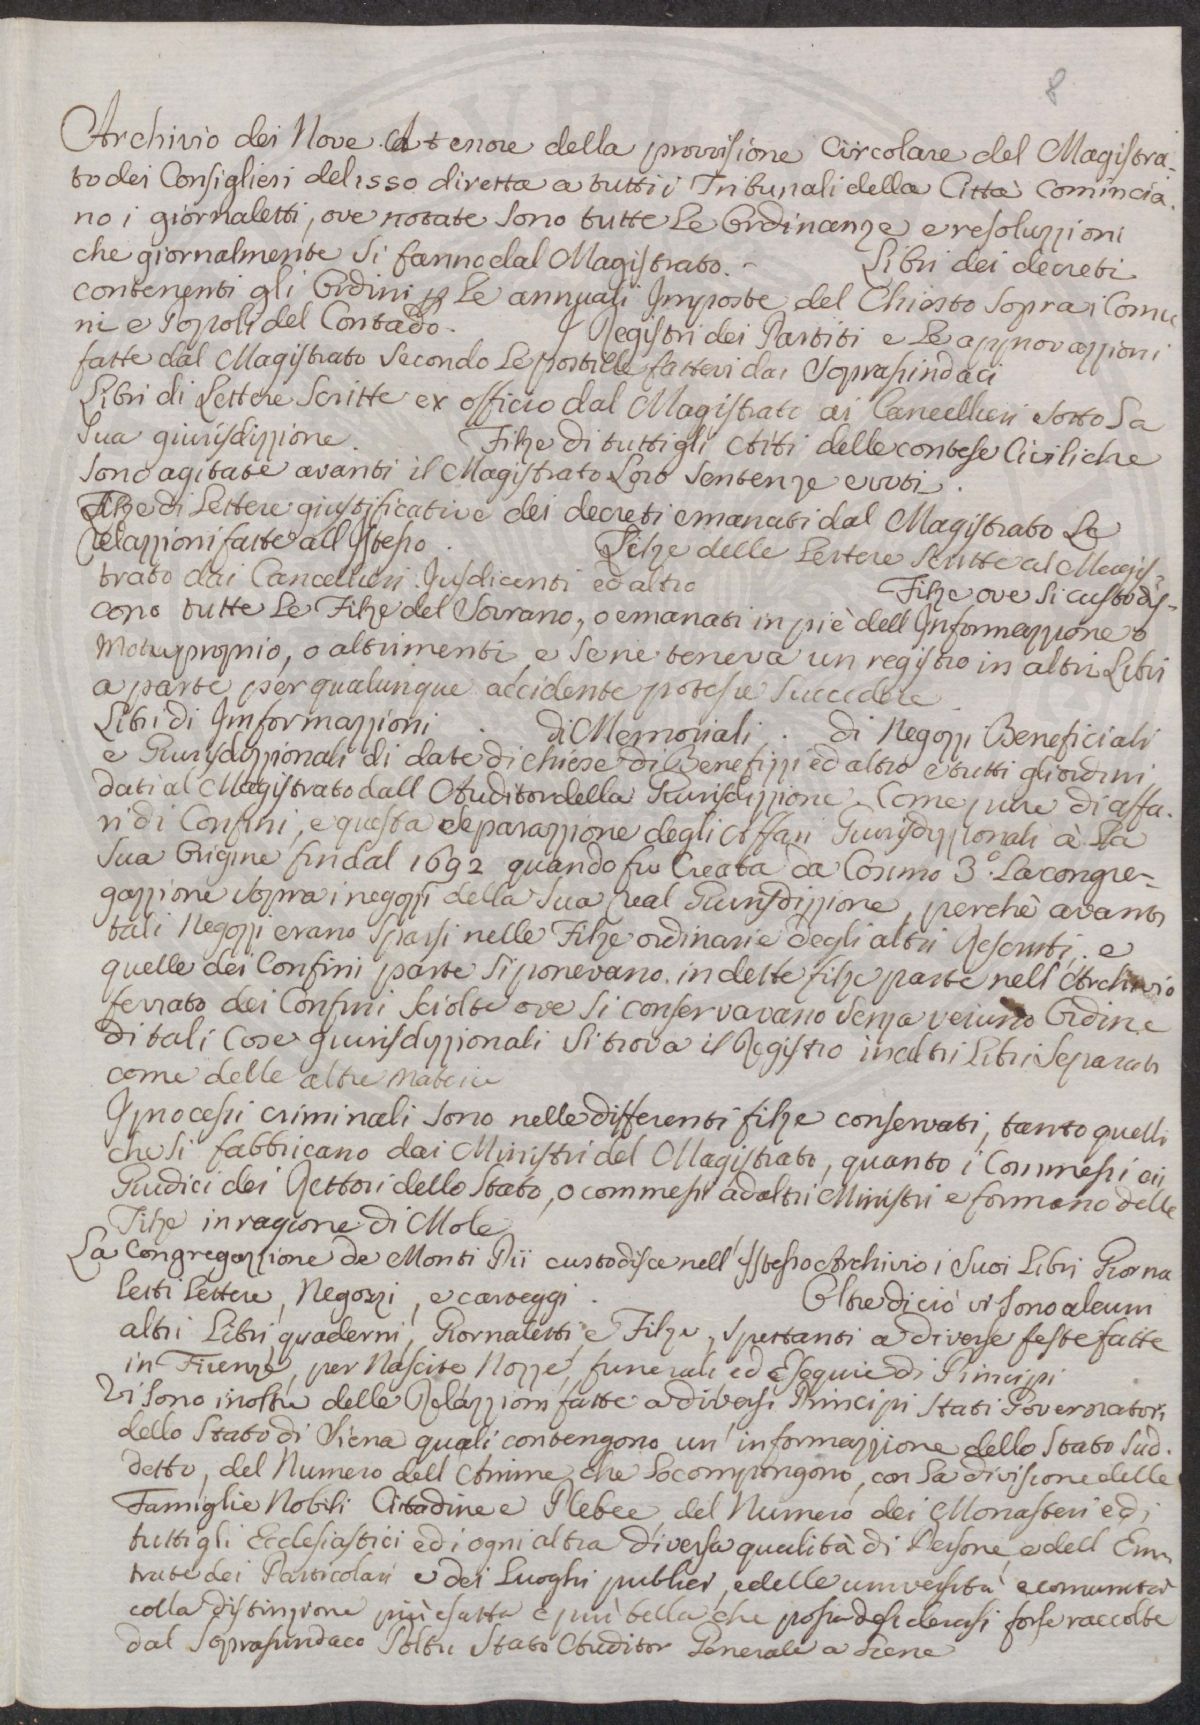 8
Archivio dei Nove. A tenore della provvisione Circolare del Magistra-
to dei Consiglieri del 1550 diretta a tutti i Tribunali della Città comincia-
no i giornaletti, ove notate sono tutte Le Ordinanze e resoluzzioni
che giornalmente si fanno dal Magistrato. - Libri dei decreti
contenenti gli Ordini p Le annuali Imposte del Chiesto sopra i Comu
ni e Popoli del Contado. Registri dei Partiti e Le approvazzioni
fatte dal Magistrato secondo Le postille fattevi dai Soprasindaci
Libri di Lettere scritte ex officio dal Magistrato ai Cancellieri sotto La
Sua giurisdizzione. Filze di tutti gli Atti delle contese Civili che
sono agitate avanti il Magistrato Loro Sentenze e voti.
Filze di Lettere giustificative dei decreti emanati dal Magistrato Le
Relazzioni fatte all Istesso. Filze delle Lettere scritte al Magis-
trato dai Cancellieri Jusdicenti ed altro Filze ove si custodis-
cono tutte Le Filze del Sovrano, o emanati in piè dell Informazzione o
Motuproprio, o altrimenti e se ne teneva un registro in altri Libri
a parte per qualunque accidente potesse succedere
Libri di Imformazzioni . di Memoriali . di Negozzi Beneficiali
e Giurisdizzionali di date di chiese di Benefizzi ed altro e tutti gli ordini
dati al Magistrato dall Auditor della Giurisdizzione. Come pure di affa-
ri di Confini, e questa separazzione degli Affari Giurisdizzionali à La
sua Origine fin dal 1692 quando fu Creata da Cosimo 3.º La congre-
gazzione sopra i negozzi della sua Real Giurisdizzione, perchè avanti
tali Negozzi erano sparsi nelle Filze ordinarie degli altri Rescritti, e
quelle dei Confini parte si ponevano in dette filze parte nell Archivio
ferrato dei Confini sciolte ove si conservavano senza veruno Ordine
di tali Cose giurisdizzionali si trova il Registro in altri Libri Separati
come delle altre materie
I processi criminali sono nelle differenti filze conservati, tanto quelli
che si fabbricano dai Ministri del Magistrato, quanto i Commessi ai
Giudici dei Rettori dello Stato, o commessi ad altri Ministri e formano delle
Filze in ragione di Mole
La Congregazzione de Monti Pii custodisce nell' Istesso Archivio i suoi Libri Giorna
letti Lettere, Negozzi, e carteggi . Oltre di ciò vi sono alcuni
altri Libri quaderni, Giornaletti, e Filze, spettanti a diverse feste fatte
in Firenze, per Nascite Nozze, funerali ed Esequie di Principi
Vi sono inoltre delle Relazzioni fatte a diversi Principi stati Governatori
dello Stato di Siena quali contengono un' informazzione dello Stato Sud-
detto, del Numero dell Anime, che Lo compongono, con La divisione delle
Famiglie Nobili Citadine e Plebee, del Numero dei Monasteri e di
tutti gli Ecclesiastici e di ogni altra diversa qualità di Persone e dell En-
trate dei Particolari e dei Luoghi publici, e delle università e comunità
colla distinzione più esatta e più bella che possa desiderarsi forse raccolte
dal Soprasindaco stato Auditor Generale a Siena